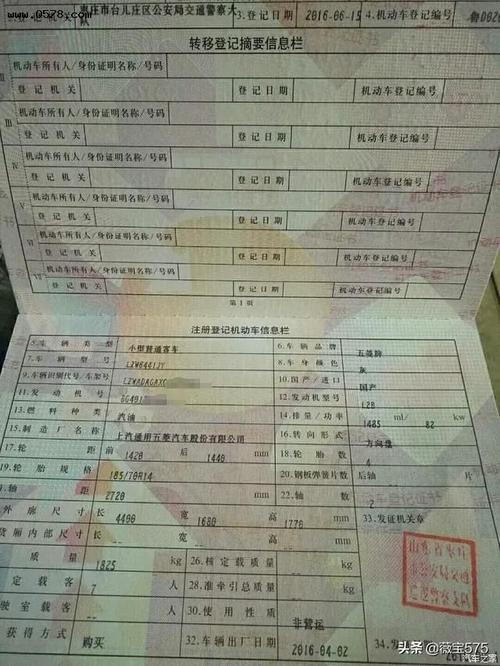 www.0578.com
枣庄市台儿庄区公安局交通警察大队 3.登记日期 2016-06-15 4.机动车登记编号
转移登记摘要信息栏
机动车所有人/身份证明名称/号码
登记机关 登记日期 机动车登记编号
III 机动车所有人/身份证明名称/号码
登记机关 登记日期 机动车登记编号
IV 机动车所有人/身份证明名称/号码
登记机关 登记日期 机动车登记编号
V 机动车所有人/身份证明名称/号码
登记机关 登记日期 机动车登记编号
VI 机动车所有人/身份证明名称/号码
登记机关 登记日期 机动车登记编号
VII 机动车所有人/身份证明名称/号码
登记机关 登记日期 机动车登记编号
第1页
注册登记机动车信息栏
5.车辆类型 小型普通客车 6.车辆品牌 五菱牌
7.车辆型号 LZW6441JY 8.车身颜色 灰
9.车辆识别代号/车架号 LZWADAGAXC 10.国产/进口 国产
11.发动机号 12.发动机型号 L2B
13.燃料种类 汽油 14.排量/功率 1485 ml/ 82 kw
15.制造厂名称 上汽通用五菱汽车股份有限公司 16.转向形式 方向盘
17.轮距 前 1420 后 1440 mm 18.轮胎数 4
19.轮胎规格 185/70R14 20.钢板弹簧片数 后轴 片
轴距 2720 mm 22.轴数 2
外廓尺寸 长 4400 宽 1680 高 1770 mm 33.发证机关章
货厢内部尺寸 长 -- 宽 -- 高 -- mm
质量 1825 kg 26.核定载质量 -- kg
定载客 7 人 28.准牵引总质量 -- kg
驶室载客 -- 人 30.使用性质 非营运
获得方式 购买 32.车辆出厂日期 2016-04-02 34.发
头条 @薇宝575
汽车之家